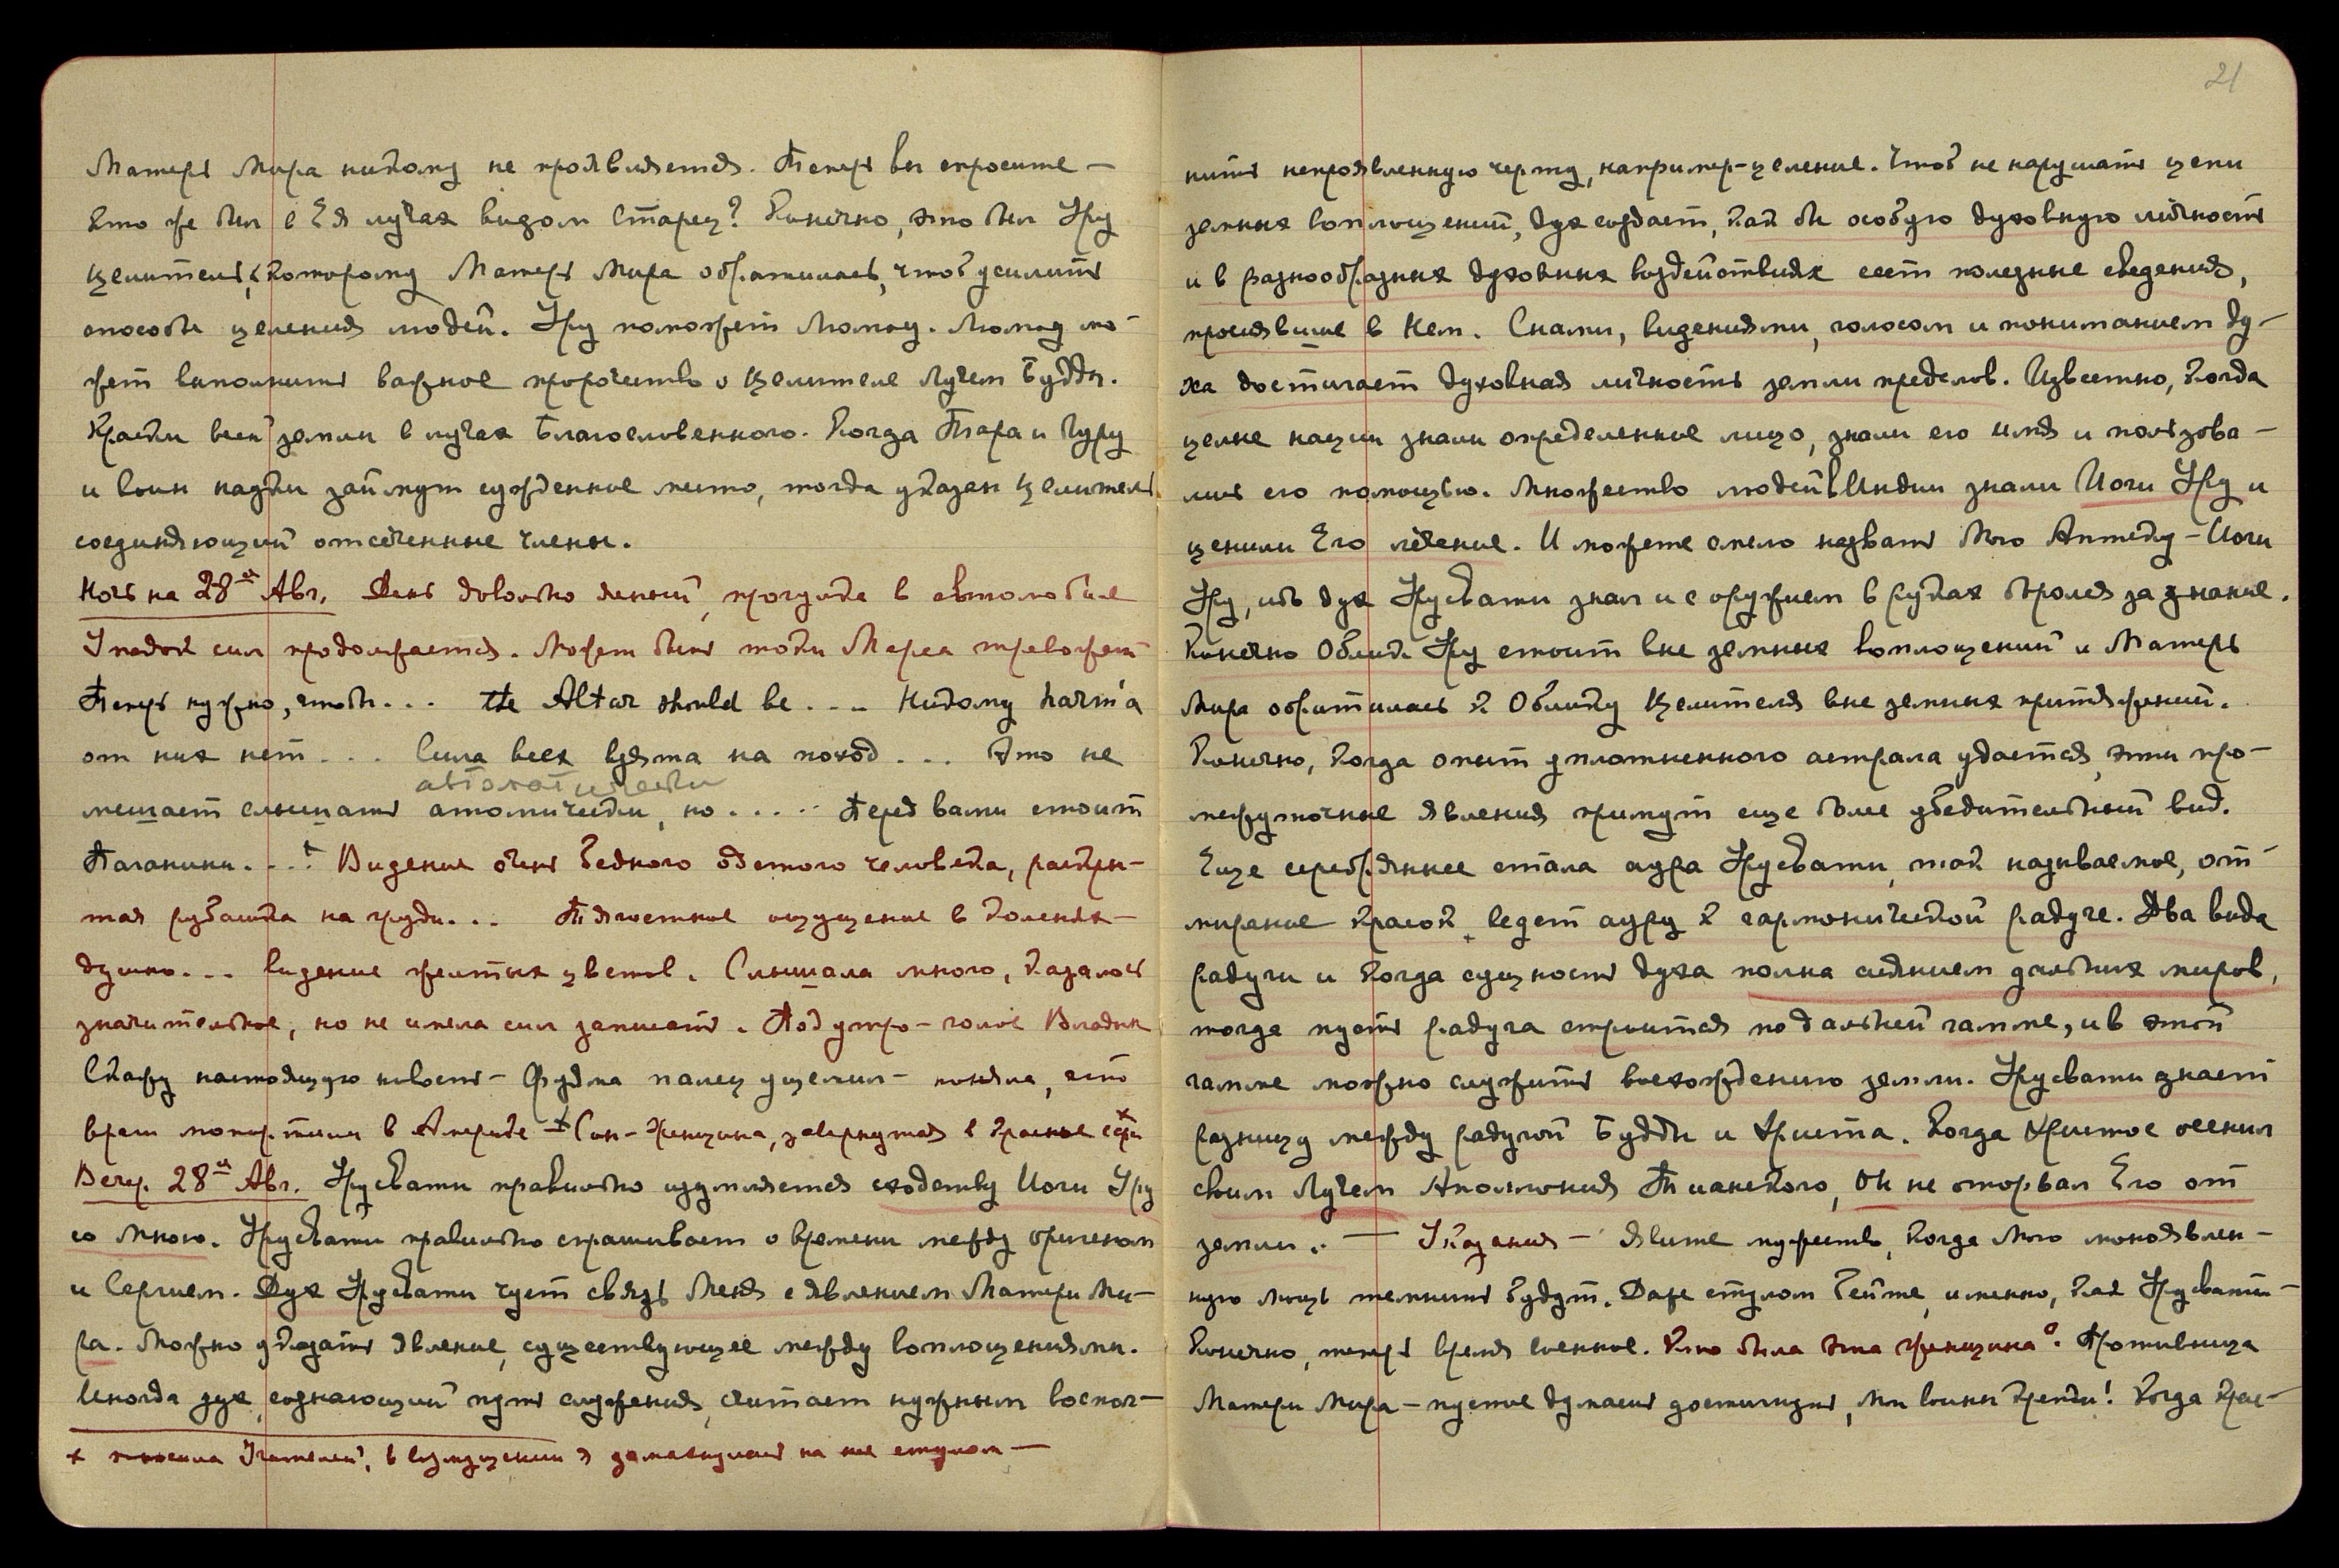 21
Матерь Мира никому не проявляется. Теперь вы спросите —
Кто же был с Ея лучах видом Старец? Конечно, это был Уру
Целитель, к которому Матерь Мира обратилась, чтоб усилить
способы целения людей. Уру поможет Люмоу. Люмоу мо-
жет выполнить важное пророчество о Целителе Лучем Будды.
Краски всей земли в лучах Благословенного. Когда Тара и Гуру
и воин науки займут сужденное место, тогда указан Целитель
соединяющий отсеченные члены.
Ночь на 28ое Авг. День довольно ясный, прогулка в автомобиле
Упадок сил продолжается. Может быть токи Марса тревожат
Теперь нужно, чтобы... the Altar should be ... Никому harm'а
от них нет ... Сила всех взята на поход ... Это не
автоматически
мешает слышать атомически, но ..... Перед вами стоит
Паганини... Видение очень бедного одетого человека, раскры-
тая рубашка на груди... Тягостное ощущение в коленях —
душно... Видение желтых цветов. Слышала много, казалось
значительное, но не имела сил записать. Под утро — голос Владык
Скажу настоящую новость — Фуяма палец ущемил — поняла, что
враги попортили в Америке — + Сон — Женщина, завернутая в красное сари +
Вечер. 28ое Авг. Урусвати правильно изумляется сходству Йоги Уру
со Мною. Урусвати правильно спрашивает о времени между Оригеном
и Сергием. Дух Урусвати чует связь Меня с явлением Матери Ми-
ра. Можно указать явление, существующее между воплощениями.
Иногда дух, сознающий путь служения, считает нужным воспол-
+ поносила Учителей, в возмущении я замахнулась на нее стулом —
нить непроявленную черту, например — целение. Чтоб не нарушать цепи
земных воплощений, дух создает, как бы особую духовную личность
и в разнообразных духовных воздействиях сеет полезные сведения,
проявившие в Нем. Снами, видениями, голосом и пониманием ду-
ха достигает духовная личность земли пределов. Известно, когда
целые нации знали определенное лицо, знали его имя и пользова-
лись его помощью. Множество людей в Индии знали Йоги Уру и
ценили Его лечение. И можете смело назвать Мою Аптеку — Йоги
Уру, ибо дух Урусвати знал и с оружием в руках боролся за знание.
Конечно Облик Уру стоит вне земных воплощений и Матерь
Мира обратилась к Облику Целителя вне земных притяжений.
Конечно, когда опыт уплотненного астрала удастся, эти про-
межуточные явления примут еще более убедительный вид.
Еще серебряннее стала аура Урусвати, так называемое, от-
мирание красок ведет ауру к гармонической радуге. Два вида
радуги и когда сущность духа полна сиянием дальних миров,
тогда пусть радуга строится по дальней гамме, и в этой
гамме можно служить восхождению земли. Урусвати знает
разницу между радугой Будды и Христа. Когда Христос осенил
своим Лучем Аполлония Тианского, Он не оторвал Его от
земли. — Указания — Явите мужество, когда Мою монаявлен-
ную мощь темнить будут. Даже стулом бейте, именно, как Урусвати —
Конечно, теперь время военное. Кто была эта женщина? Противница
Матери Мира — пустое думаешь достигнуть, мы воины крепки! Когда крас-